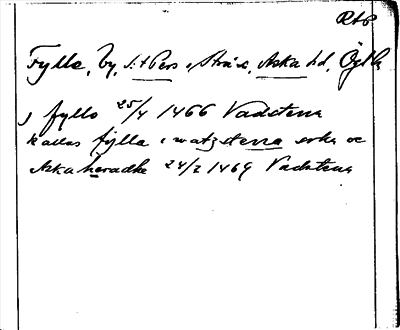 RAP
Fylla, by, S:t Pers, Strå s., Aska hd, Ögtl
J fyllo 25/4 1466 Vadstena
kallas fylla i watzstena sokn oc
Aska heradhe 24/2 1469 Vadstena